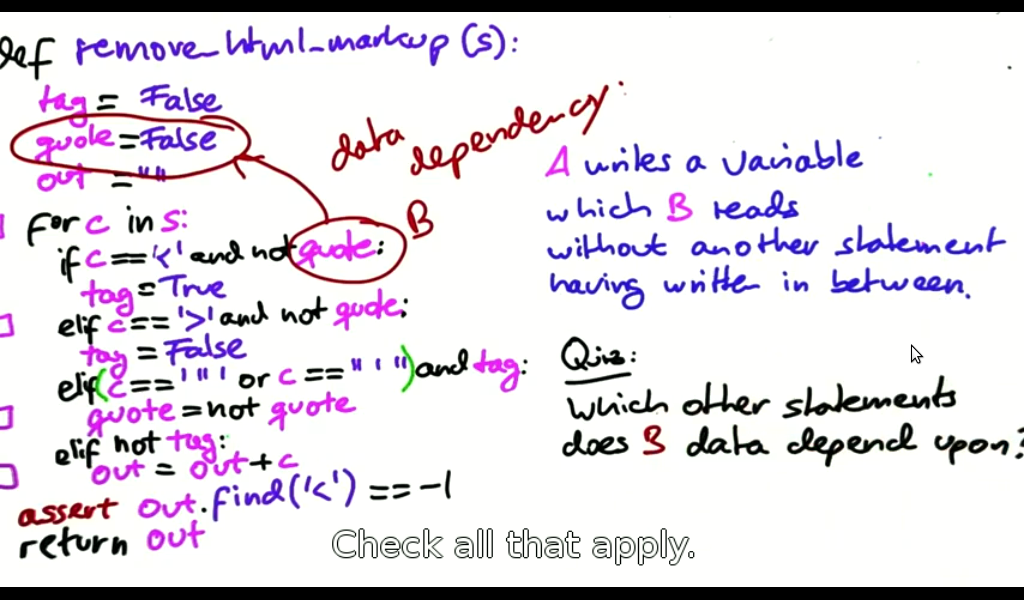 def remove_html_markup (s):
tag = False
quote = False
out = ""
data dependency:
for c in s:
B
if c == '<' and not quote:
tag = True
elif c == '>' and not quote:
tag = False
elif (c == '"' or c == "'") and tag:
quote = not quote
elif not tag:
out = out + c
assert out.find('<') == -1
return out
A writes a variable
which B reads
without another statement
having written in between.
Quiz:
Which other statements
does B data depend upon?
Check all that apply.